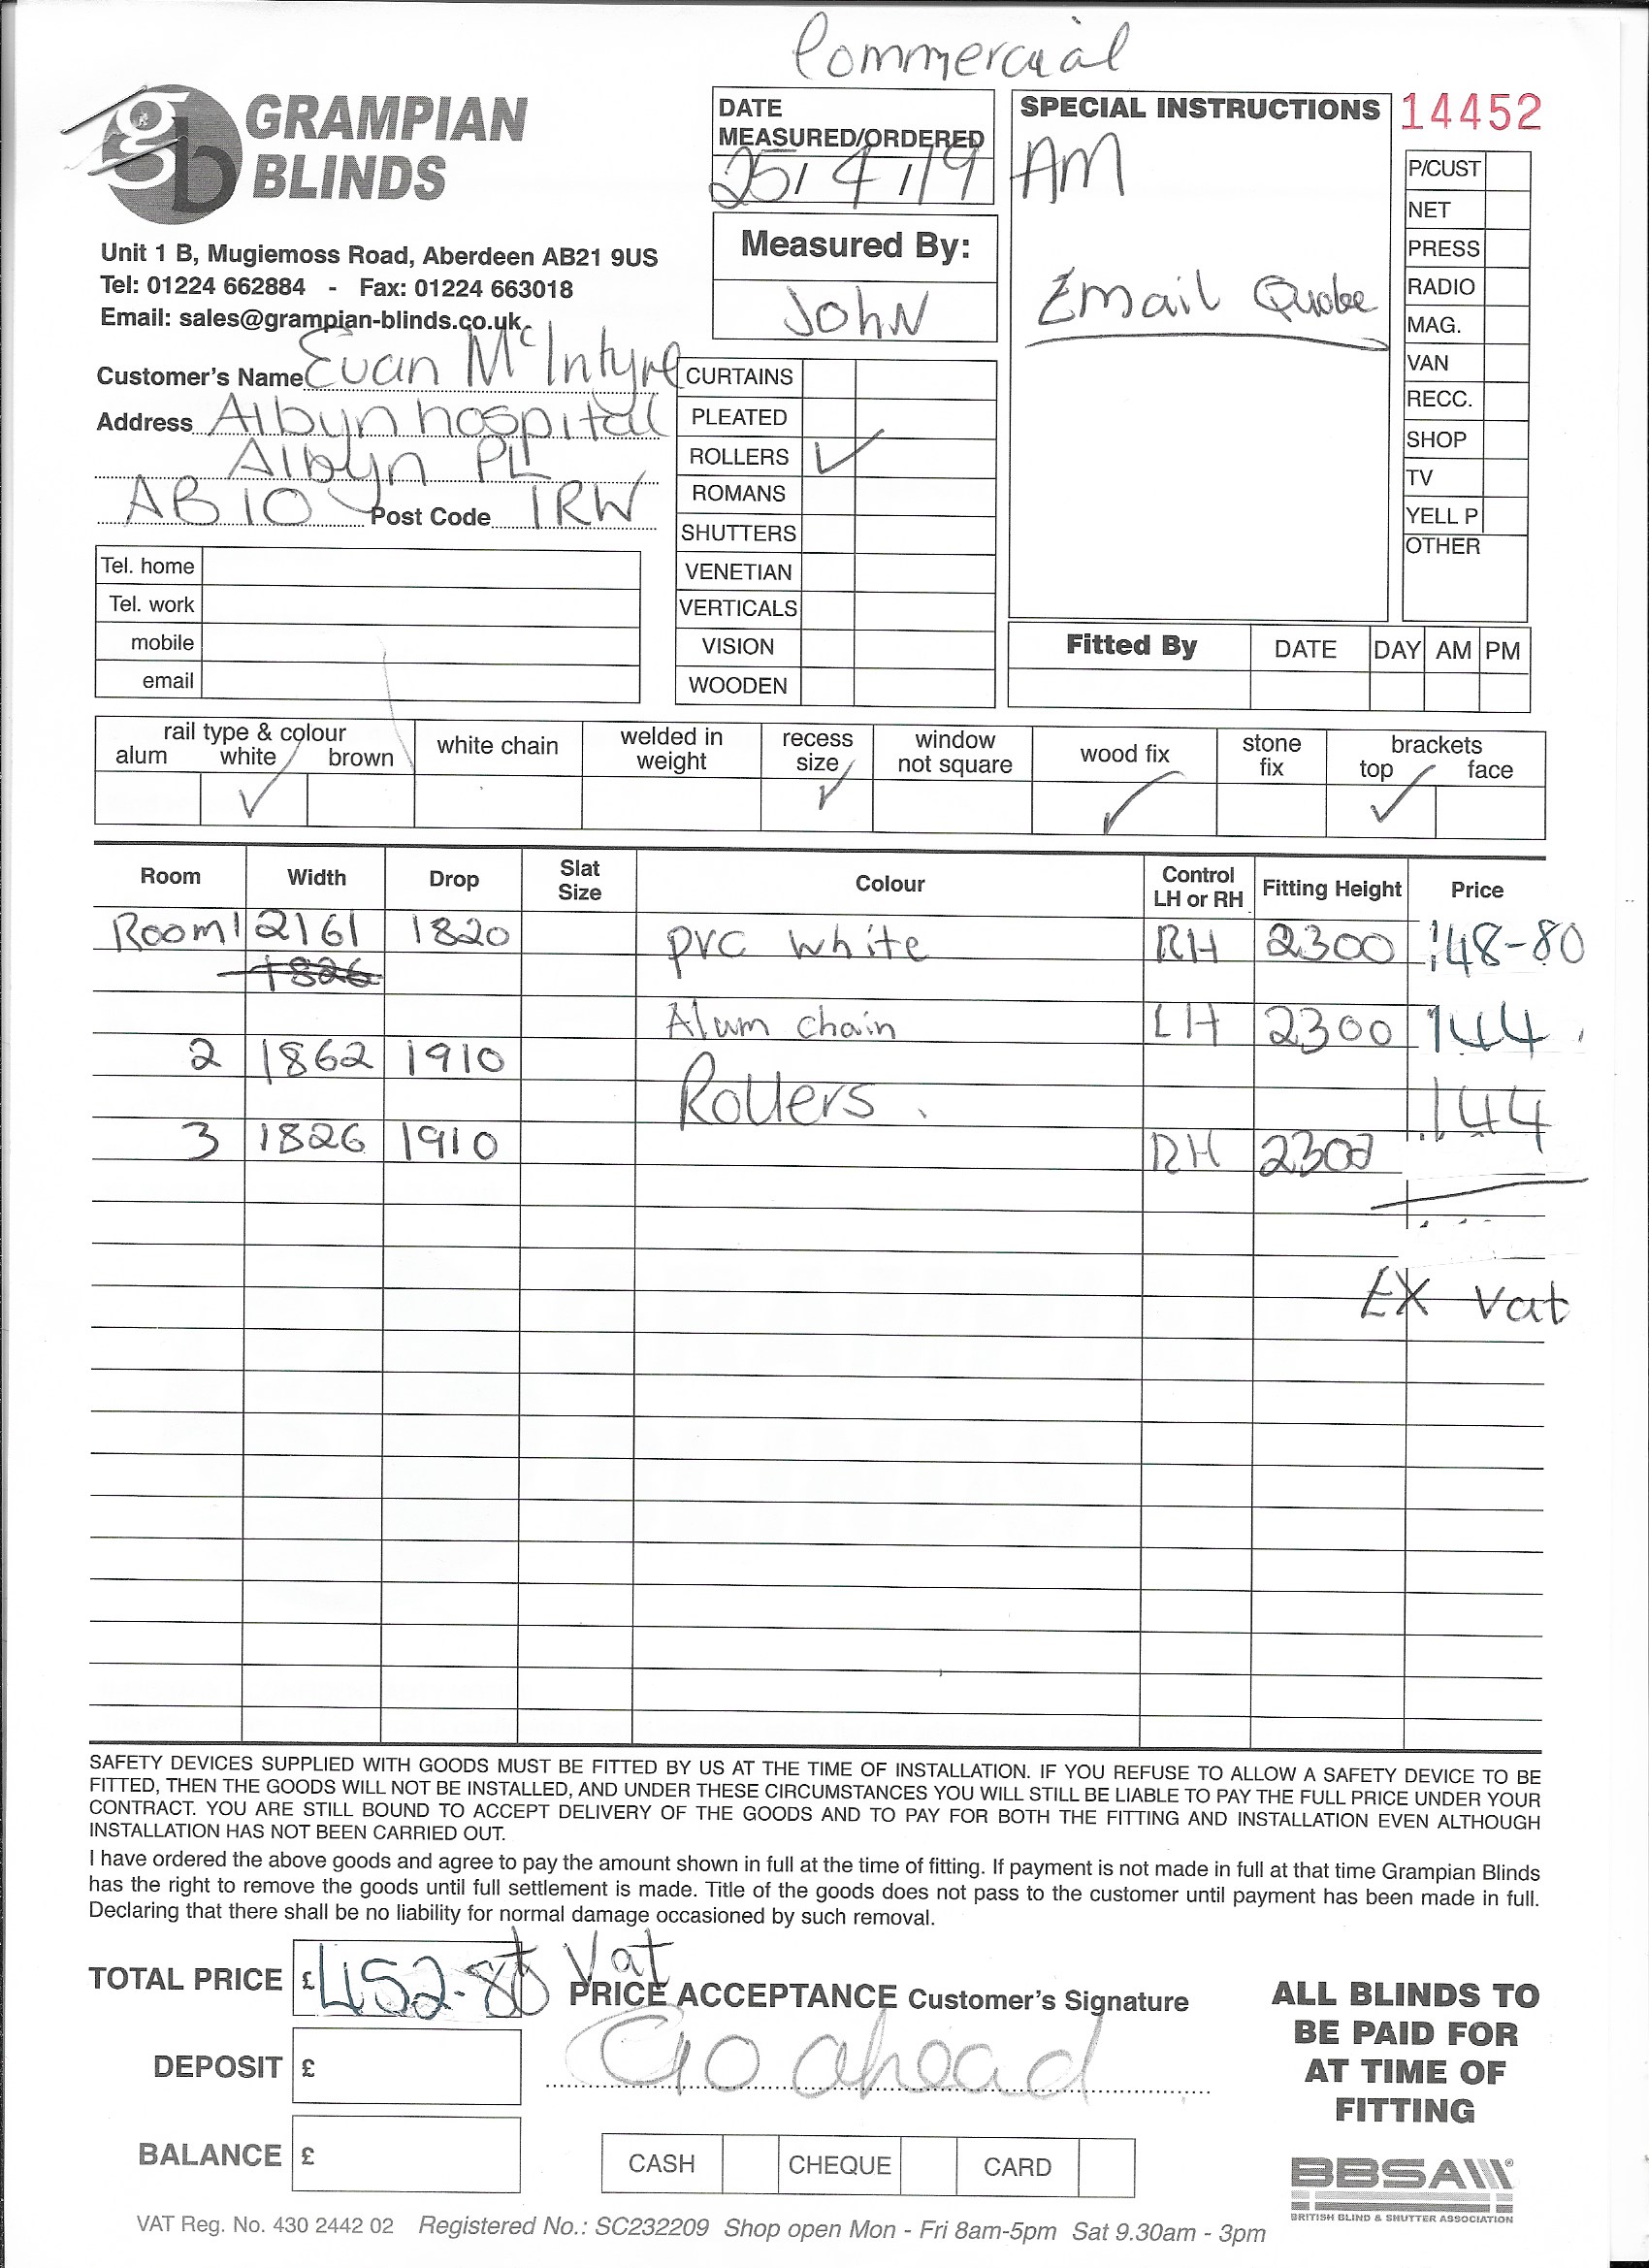 Commercial
GRAMPIAN
BLINDS
Unit 1 B, Mugiemoss Road, Aberdeen AB21 9US
Tel: 01224 662884 - Fax: 01224 663018
Email: sales@grampian-blinds.co.uk
DATE
MEASURED/ORDERED
25/4/19
Measured By:
John
SPECIAL INSTRUCTIONS
AM
Email Quote
14452
P/CUST
NET
PRESS
RADIO
MAG.
VAN
RECC.
SHOP
TV
YELL P
OTHER
Customer's Name Euan McIntyre
Address Albyn hospital
Albyn PL
AB10 Post Code 1RW
Tel. home
Tel. work
mobile
email
CURTAINS
PLEATED
ROLLERS ✓
ROMANS
SHUTTERS
VENETIAN
VERTICALS
VISION
WOODEN
Fitted By DATE DAY AM PM
rail type & colour
alum white brown
white chain
welded in
weight
recess
size
window
not square
wood fix
stone
fix
brackets
top face
✓ ✓ ✓ ✓
Room Width Drop Slat Size Colour Control LH or RH Fitting Height Price
Room 1 2161 1820 PVC white RH 2300 148-80
1826
Alum chain LH 2300 144
2 1862 1910
Rollers. 144
3 1826 1910 RH 2300
EX Vat
SAFETY DEVICES SUPPLIED WITH GOODS MUST BE FITTED BY US AT THE TIME OF INSTALLATION. IF YOU REFUSE TO ALLOW A SAFETY DEVICE TO BE
FITTED, THEN THE GOODS WILL NOT BE INSTALLED, AND UNDER THESE CIRCUMSTANCES YOU WILL STILL BE LIABLE TO PAY THE FULL PRICE UNDER YOUR
CONTRACT. YOU ARE STILL BOUND TO ACCEPT DELIVERY OF THE GOODS AND TO PAY FOR BOTH THE FITTING AND INSTALLATION EVEN ALTHOUGH
INSTALLATION HAS NOT BEEN CARRIED OUT.
I have ordered the above goods and agree to pay the amount shown in full at the time of fitting. If payment is not made in full at that time Grampian Blinds
has the right to remove the goods until full settlement is made. Title of the goods does not pass to the customer until payment has been made in full.
Declaring that there shall be no liability for normal damage occasioned by such removal.
TOTAL PRICE £ 452-80 + Vat
PRICE ACCEPTANCE Customer's Signature
Go ahead
DEPOSIT £
BALANCE £
CASH CHEQUE CARD
ALL BLINDS TO
BE PAID FOR
AT TIME OF
FITTING
BBSA
BRITISH BLIND & SHUTTER ASSOCIATION
VAT Reg. No. 430 2442 02 Registered No.: SC232209 Shop open Mon - Fri 8am-5pm Sat 9.30am - 3pm